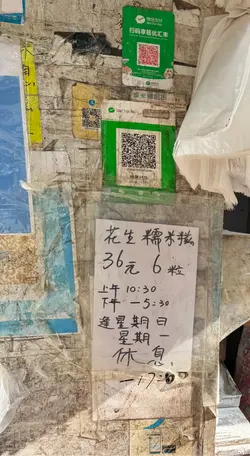 扫码享最优汇率
花生糯米糍
36元 6粒
上午 10:30
下午 -5:30
逢星期日
星期一
休息